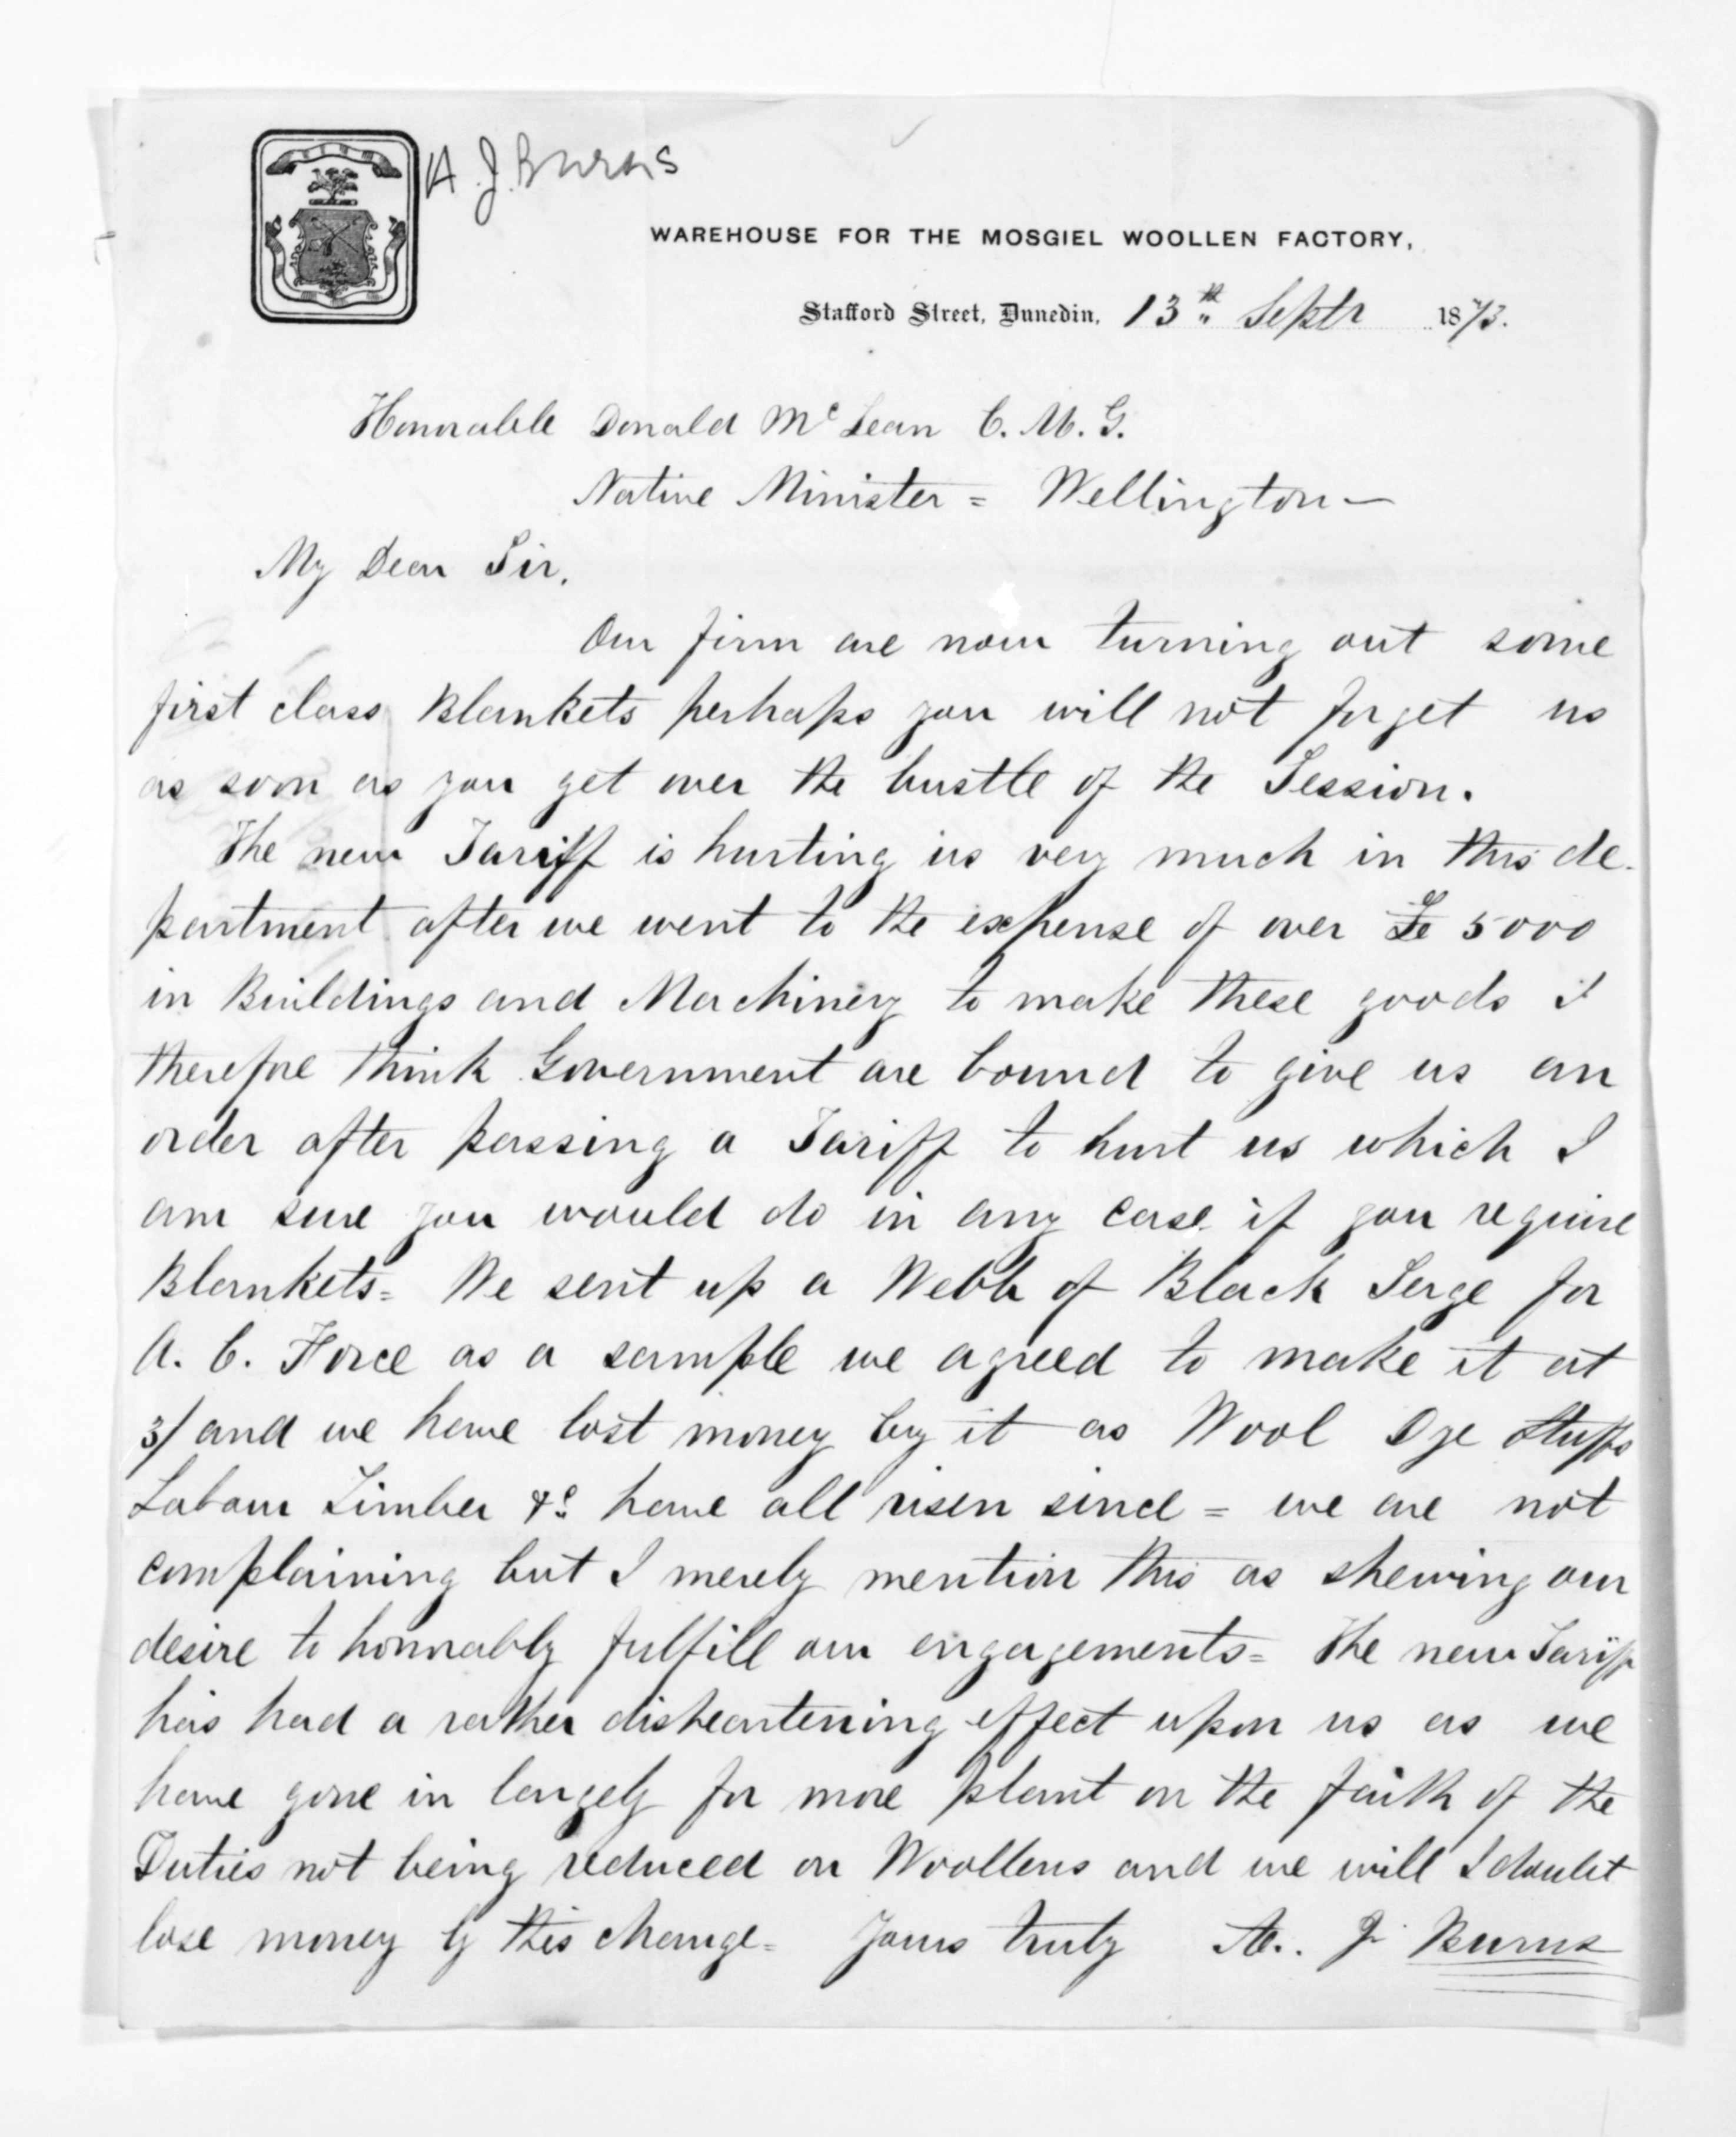 A. J. Burns
WAREHOUSE FOR THE MOSGIEL WOOLLEN FACTORY,
Stafford Street, Dunedin, 13th Septr 1873.
Honorable Donald McLean C. M. G.
Native Minister = Wellington —
My Dear Sir,
Our firm are now turning out some
first class Blankets perhaps you will not forget us
as soon as you get over the bustle of the Session.
The new Tariff is hurting us very much in this de-
partment after we went to the expense of over £5000
in Buildings and Machinery to make these goods I
therefore think Government are bound to give us an
order after passing a Tariff to hurt us which I
am sure you would do in any case if you require
Blankets = We sent up a Webb of Black Serge for
A. C. Force as a sample we agreed to make it at
3/ and we have lost money by it as Wool Dye Stuffs
Labour Timber &c have all risen since = we are not
complaining but I merely mention this as shewing our
desire to honorably fulfill our engagements = The new Tariff
has had a rather disheartening effect upon us as we
have gone in largely for more plant on the faith of the
Duties not being reduced on Woollens and we will I doubt
lose money by this change = Yours truly A. J. Burns